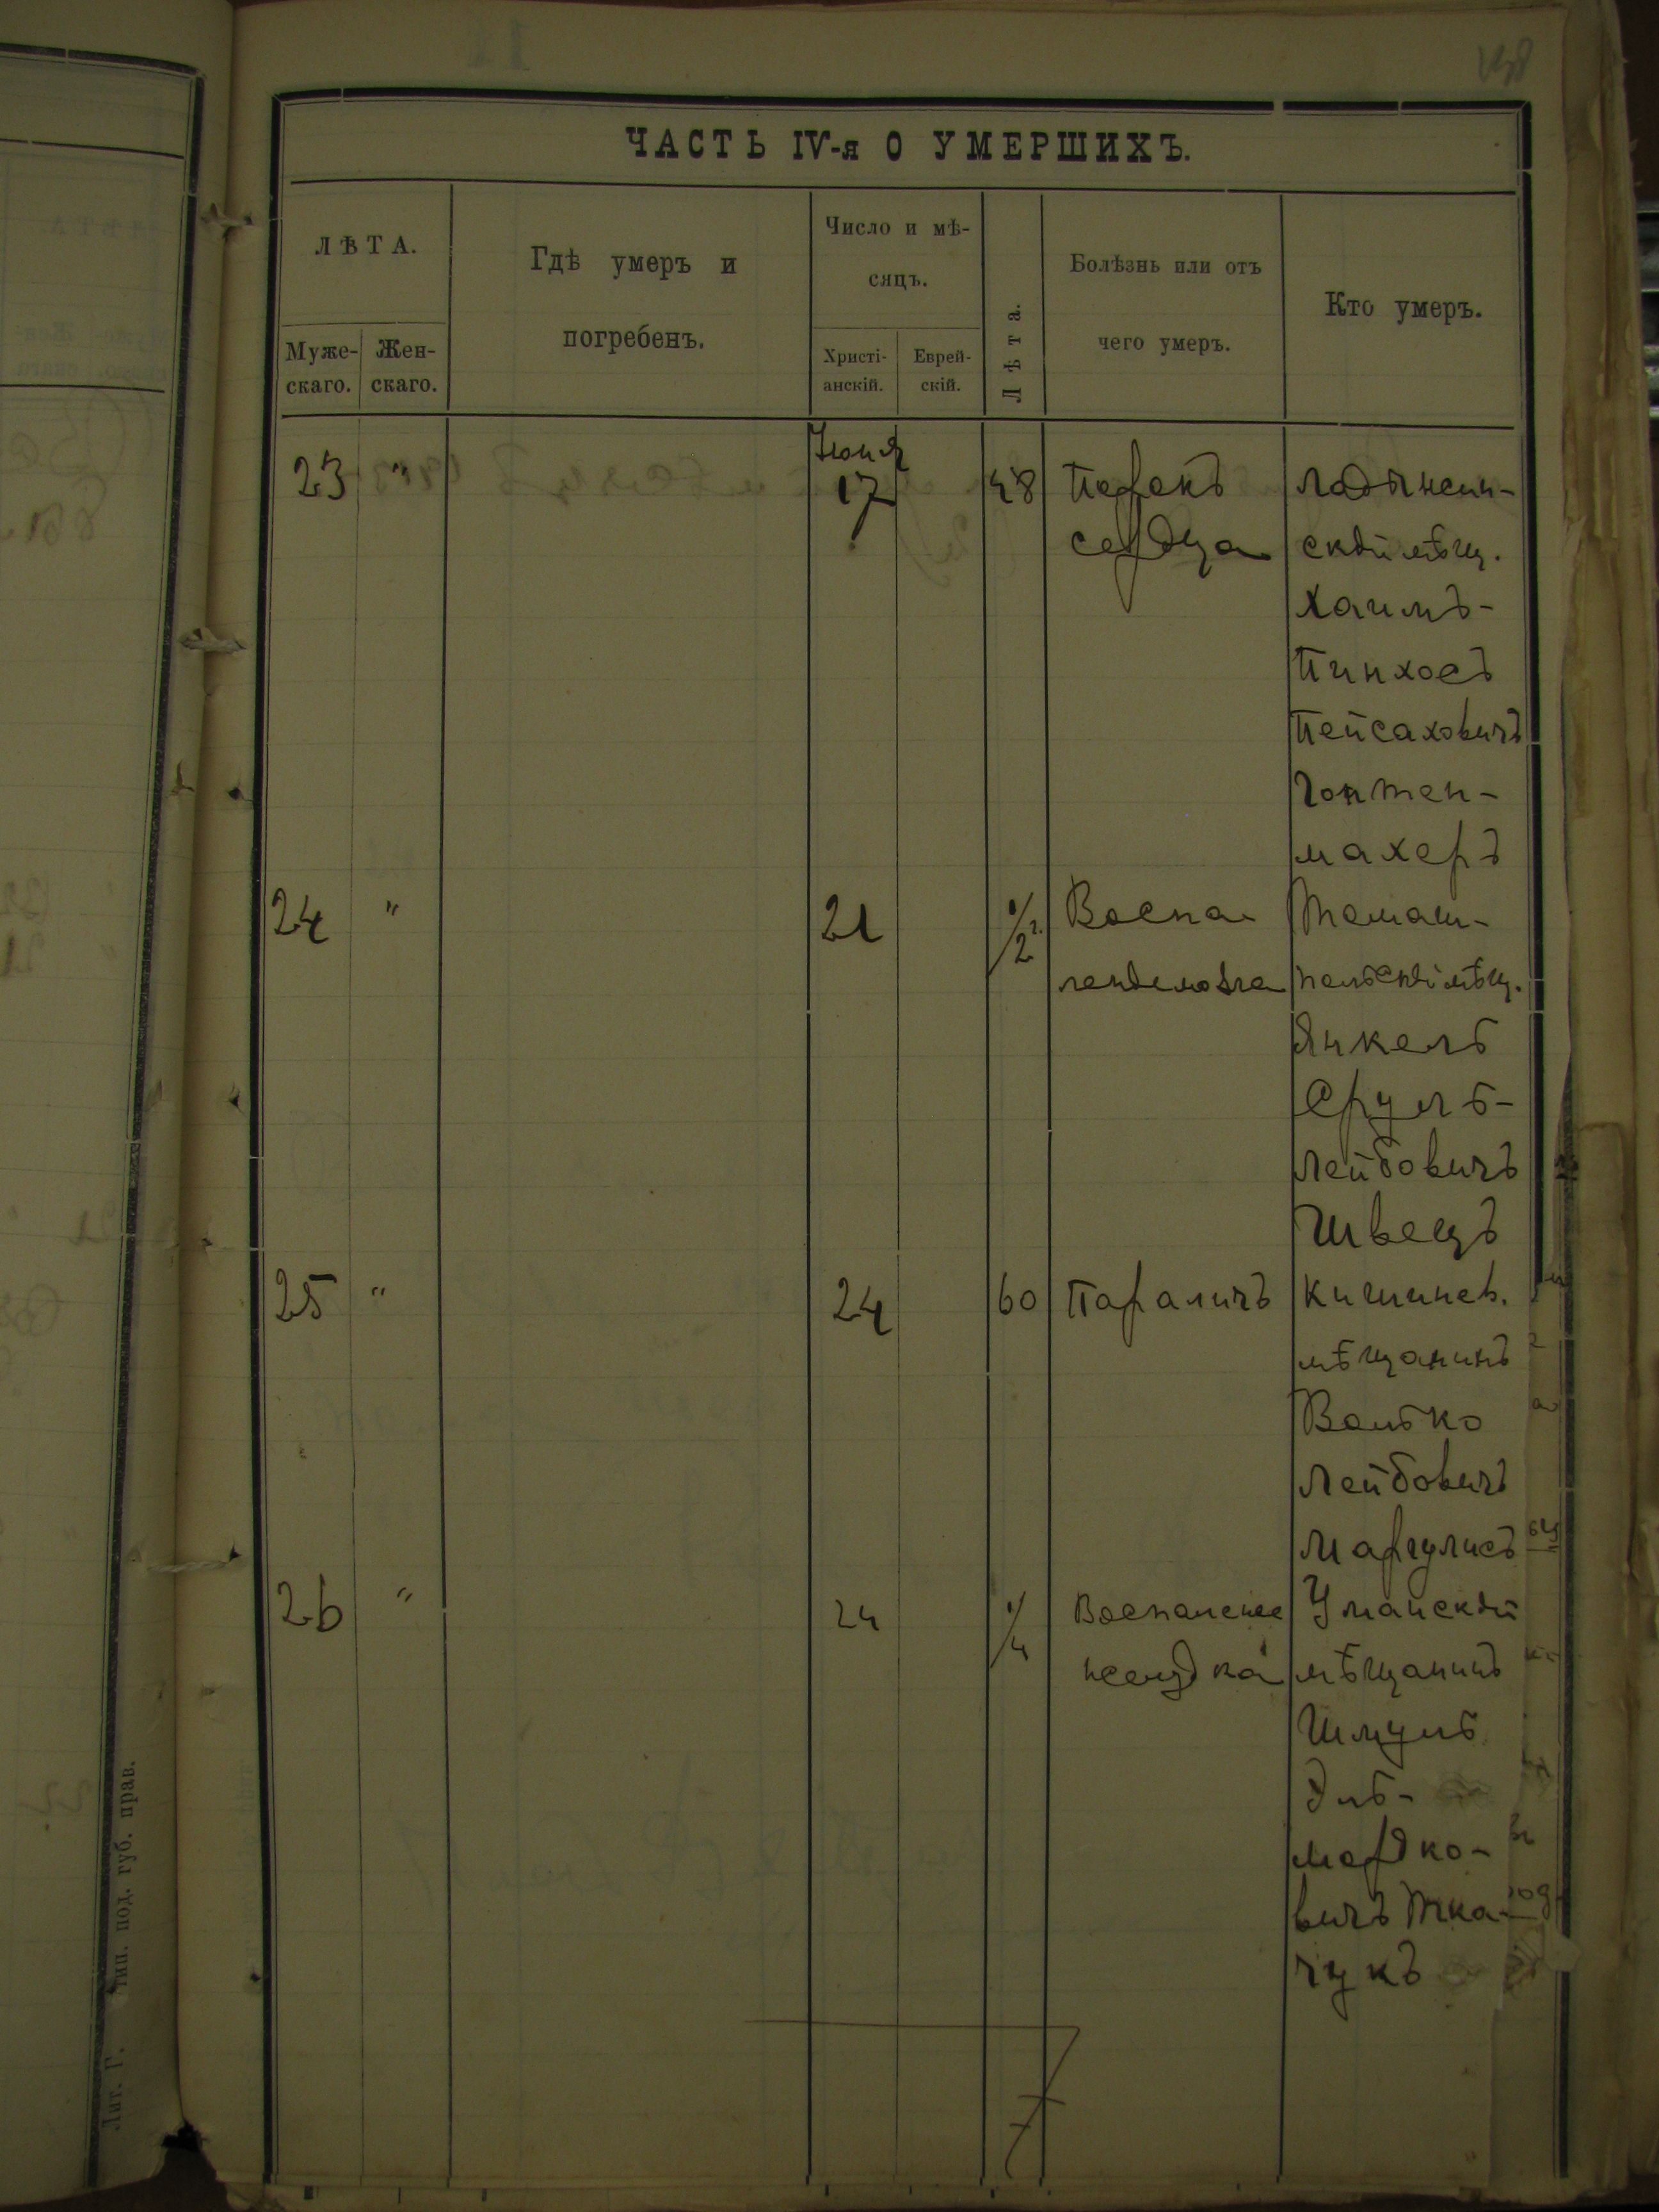 ЧАСТЬ IV-я О УМЕРШИХЪ.
ЛѢТА.
Муже-
скаго.
Жен-
скаго.
Гдѣ умеръ и
погребенъ.
Число и мѣ-
сяцъ.
Христі-
анскій.
Еврей-
скій.
Лѣта.
Болѣзнь или отъ
чего умеръ.
Кто умеръ.
Іюня
23 " 17 48 Порокъ
сердца
Ладыжин-
скій мѣщ.
Хаимъ-
Пинхосъ
Пейсаховичъ
Гонтен-
махеръ
24 " 21 1/2 г. Воспа
леніе мозга
Томаш-
польскій мѣщ.
Янкель
Сруль-
Лейбовичъ
Швецъ
25 " 24 60 Параличъ
Кишинев.
мѣщанинъ
Волько
Лейбовичъ
Маргулисъ
26 " 24 1/4 Воспаленіе
желудка
Уманскій
мѣщанинъ
Шмуль
Эль-
Мордко-
вичъ Тка-
чукъ
Лит. Г. тип. под. губ. прав.